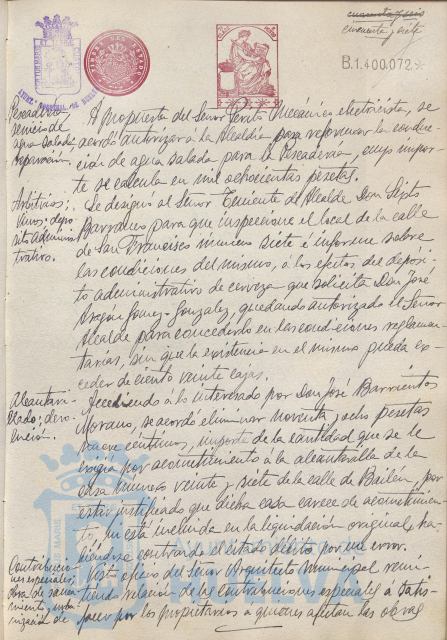 cuarenta y seis
cincuenta y siete
B.1.400.072
Pescadería
servicio de
agua salada;
reparación.
A propuesta del Señor Perito Mecánico electricista, se
acordó autorizar á la Alcaldía para reformar la conduc-
ción de agua salada para la Pescadería, cuyo impor-
te se calcula en mil ochocientas pesetas.
Arbitrios;
vinos; depó-
sito adminis-
trativo.
Se designó al Señor Teniente de Alcalde Don Sixto
Barranes para que inspeccione el local de la calle
de San Francisco número siete é informe sobre
las condiciones del mismo, á los efectos del depósi-
to administrativo de cerveza que solicita Don José
Gómez-González, quedando autorizado el Señor
Alcalde para concederlo en las condiciones reglamen-
tarias, sin que la existencia en el mismo pueda ex-
ceder de ciento veinte cajas.
Alcantari-
llado; devo-
lución.
Accediendo á lo interesado por Don José Barrientos
Morano, se acordó eliminar noventa y ocho pesetas
nueve céntimos, importe de la cantidad que se le
exigía por acometimiento á la alcantarilla de la
casa número veinte y siete de la calle de Bailén, por
estar justificado que dicha casa carece de acometimien-
to, ni está incluida en la liquidación original, ha-
biéndose contraído el estado débito por un error.
Contribucio-
nes especiales;
obra de sanea-
miento y urba-
nización de
Visto oficio del Señor Arquitecto Municipal remi-
tiendo relación de las contribuciones especiales a satis-
facer por los propietarios a quienes afectan las obras